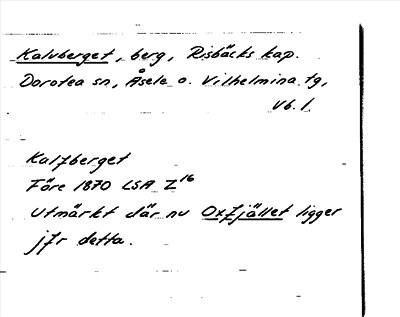 Kalvberget, berg, Risbäcks kap.
Dorotea sn, Åsele o. Vilhelmina tg,
Vb. l.
Kalfberget
Före 1870 LSA Z16
Utmärkt där nu Oxfjället ligger
jfr detta.